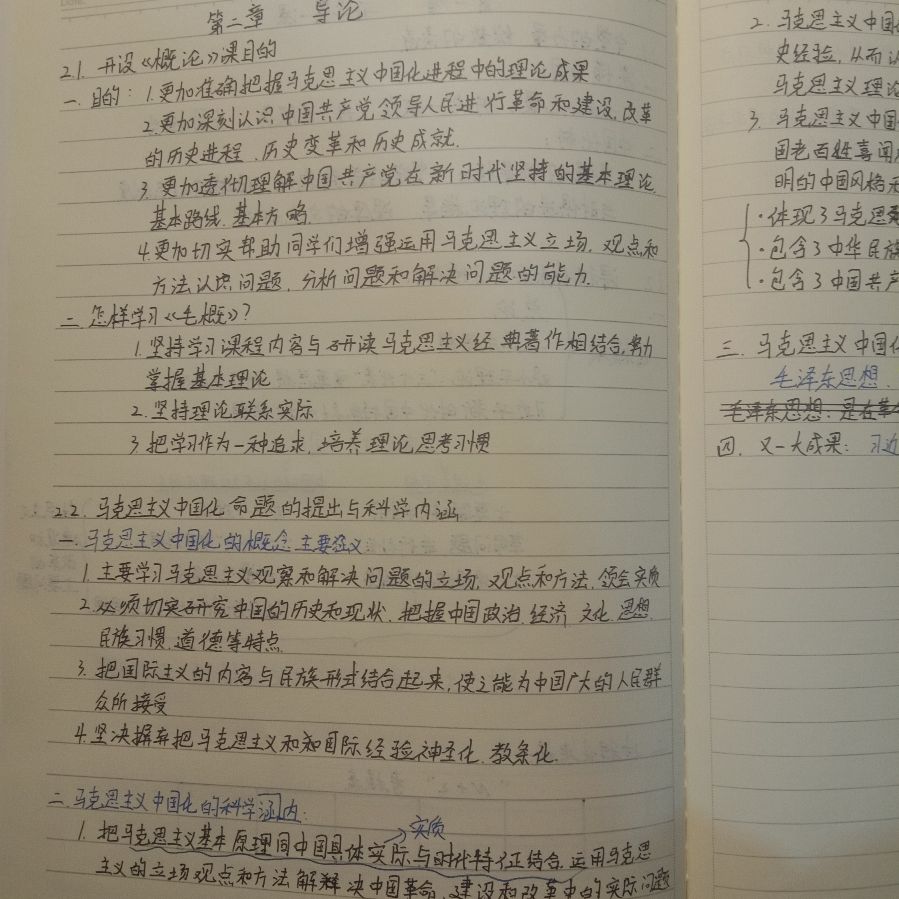 第二章 导论
2.1. 开设《概论》课目的
一. 目的: 1.更加准确把握马克思主义中国化进程中的理论成果
2.更加深刻认识中国共产党领导人民进行革命和建设、改革
的历史进程、历史变革和历史成就.
3. 更加透彻理解中国共产党在新时代坚持的基本理论
基本路线. 基本方略.
4.更加切实帮助同学们增强运用马克思主义立场. 观点和
方法认识问题, 分析问题和解决问题的能力.
二. 怎样学习《毛概》?
1.坚持学习课程内容与研读马克思主义经典著作相结合,努力
掌握基本理论
2. 坚持理论联系实际
3. 把学习作为一种追求, 培养理论思考习惯
2.2. 马克思主义中国化命题的提出与科学内涵
一. 马克思主义中国化的概念 主要涵义
1. 主要学习马克思主义观察和解决问题的立场. 观点和方法, 领会实质
2. 必须切实研究中国的历史和现状, 把握中国政治. 经济 文化. 思想.
民族习惯. 道德等特点
3. 把国际主义的内容与民族形式结合起来, 使之能为中国广大的人民群
众所接受
4. 坚决摒弃把马克思主义和国际经验神圣化. 教条化.
二. 马克思主义中国化的科学涵内:
实质
1. 把马克思主义基本原理同中国具体实际与时代特征结合. 运用马克思
主义的立场 观点和方法解决中国革命、建设和改革中的实际问题
2. 马克思主义中国
史经验, 从而
马克思主义理论
3. 马克思主义中国
国老百姓喜闻
明的中国风格
·体现了马克思
·包含了中华民族
·包含了中国共产
三. 马克思主义中国化
毛泽东思想.
毛泽东思想: 是在革
四. 又一大成果: 习近